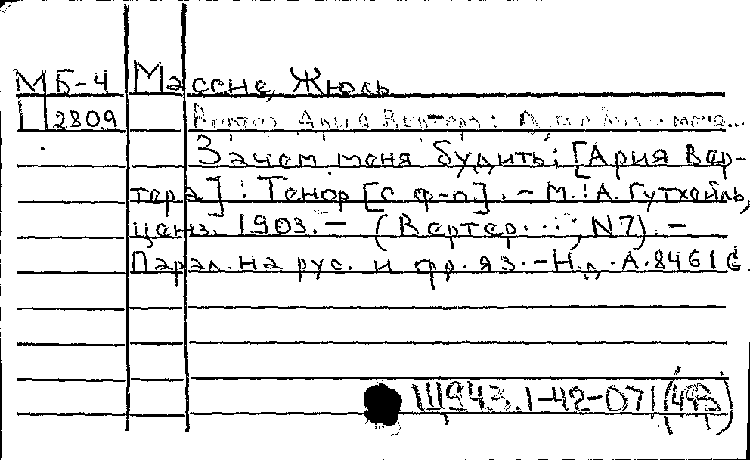 МБ-4 Массне, Жюль
2809 Вертер. Ария Вертера:
Зачем меня будить: [Ария Вер-
тера] : Тенор [с ф-п.]. - М.: А. Гутхейль,
ценз. 1903. - (Вертер. ; N7). -
Парал. на рус. и фр. яз. - Н.д. А.8461 С.
Щ943.1-42-071